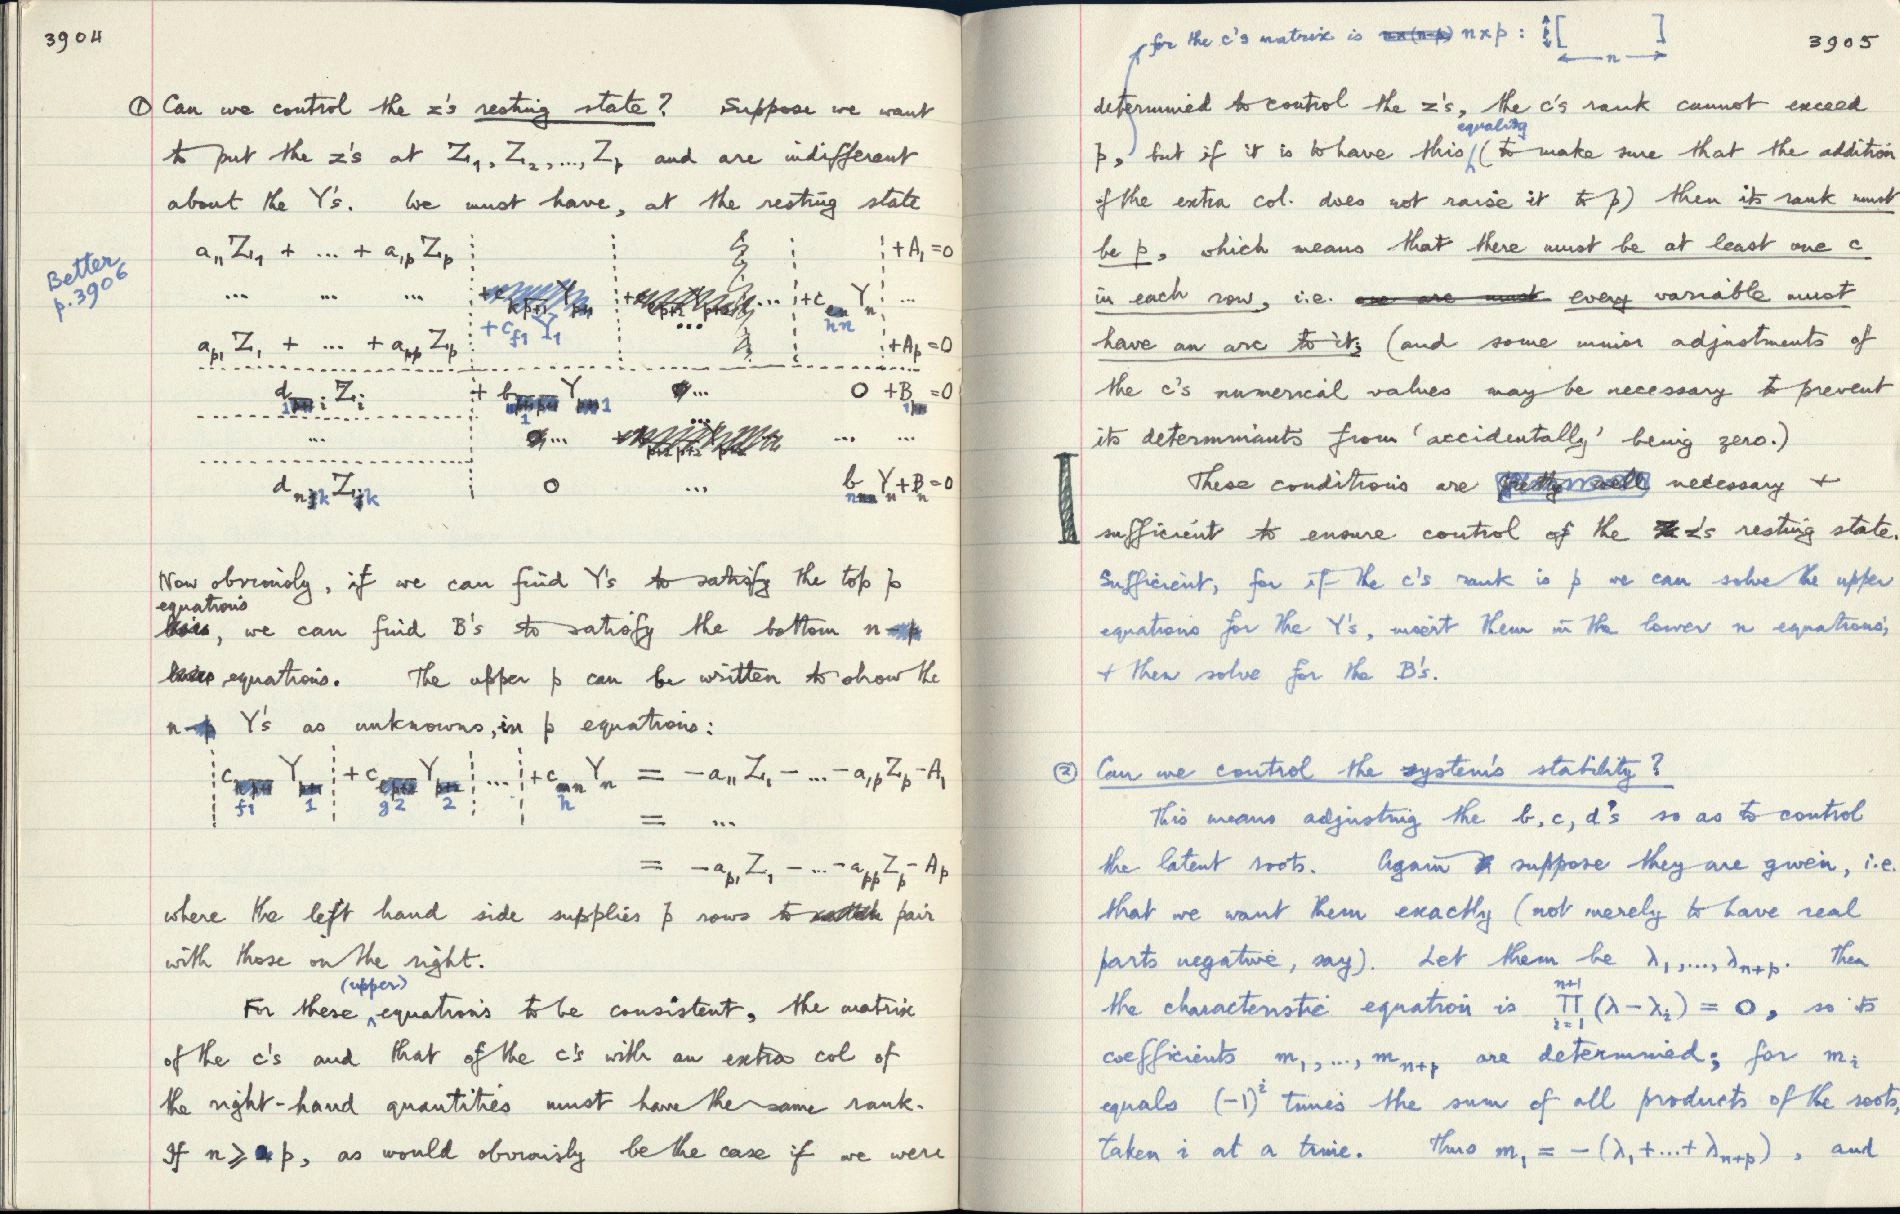 3904
① Can we control the z's resting state? Suppose we want
to put the z's at Z₁, Z₂, ..., Zp and are indifferent
about the Y's. We must have, at the resting state
Better
p. 3906
a₁₁ Z₁ + ... + a₁p Zp +A₁ =0
... ... ... + c Y n ...
+ c f1 Y₁ ... nn
ap₁ Z₁ + ... + app Zp +Ap =0
d 1 i Z i + b 1 Y 1 ... 0 +B 1 =0
... ... ... ... ...
d n k Z k 0 ... b n Y n + B n =0
Now obviously, if we can find Y's to satisfy the top p
equations
, we can find B's to satisfy the bottom n
equations. The upper p can be written to show the
n Y's as unknowns, in p equations:
c f1 Y 1 + c g2 Y 2 ... + c n Y n = -a₁₁ Z₁ - ... - a₁p Zp - A₁
= ...
= -ap₁ Z₁ - ... - app Zp - Ap
where the left hand side supplies p rows to pair
with those on the right.
(upper)
For these ^ equations to be consistent, the matrix
of the c's and that of the c's with an extra col of
the right-hand quantities must have the same rank.
If n ⩾ p, as would obviously be the case if we were
for the c's matrix is n×p : p [ ]
n
3905
determined to control the z's, the c's rank cannot exceed
equality
p, but if it is to have this (to make sure that the addition
of the extra col. does not raise it to p) then its rank must
be p, which means that there must be at least one c
in each row, i.e. every variable must
have an arc to it; (and some minor adjustments of
the c's numerical values may be necessary to prevent
its determinants from 'accidentally' being zero.)
These conditions are necessary +
sufficient to ensure control of the z's resting state.
Sufficient, for if the c's rank is p we can solve the upper
equations for the Y's, insert them in the lower n equations,
+ then solve for the B's.
② Can we control the system's stability?
This means adjusting the b, c, d's so as to control
the latent roots. Again suppose they are given, i.e.
that we want them exactly (not merely to have real
parts negative, say). Let them be λ₁, ..., λn+p. Then
the characteristic equation is n+1 Π i=1 (λ - λi) = 0, so its
coefficients m₁, ..., mn+p are determined; for mi
equals (-1)^i times the sum of all products of the roots,
taken i at a time. Thus m₁ = -(λ₁+...+λn+p), and